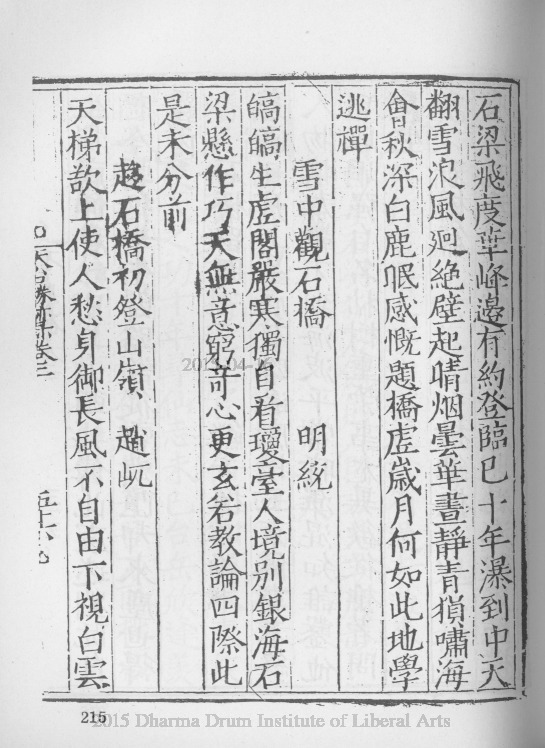 石梁飛度華峰邊有約登臨已十年瀑到中天
翻雪浪風迴絶壁起晴烟曇華晝靜青猿嘯海
會秋深白鹿眠感慨題橋虛歲月何如此地學
逃禪
雪中觀石橋 明統
皜皜生虛閣嚴寒獨自看瓊臺人境別銀海石
梁懸作巧天無意窮奇心更玄若教論四際此
是未分前
趍石橋初登山嶺 趙屼
天梯欹上使人愁身御長風不自由下視白雲
天台勝蹟卷三
215
2015 Dharma Drum Institute of Liberal Arts